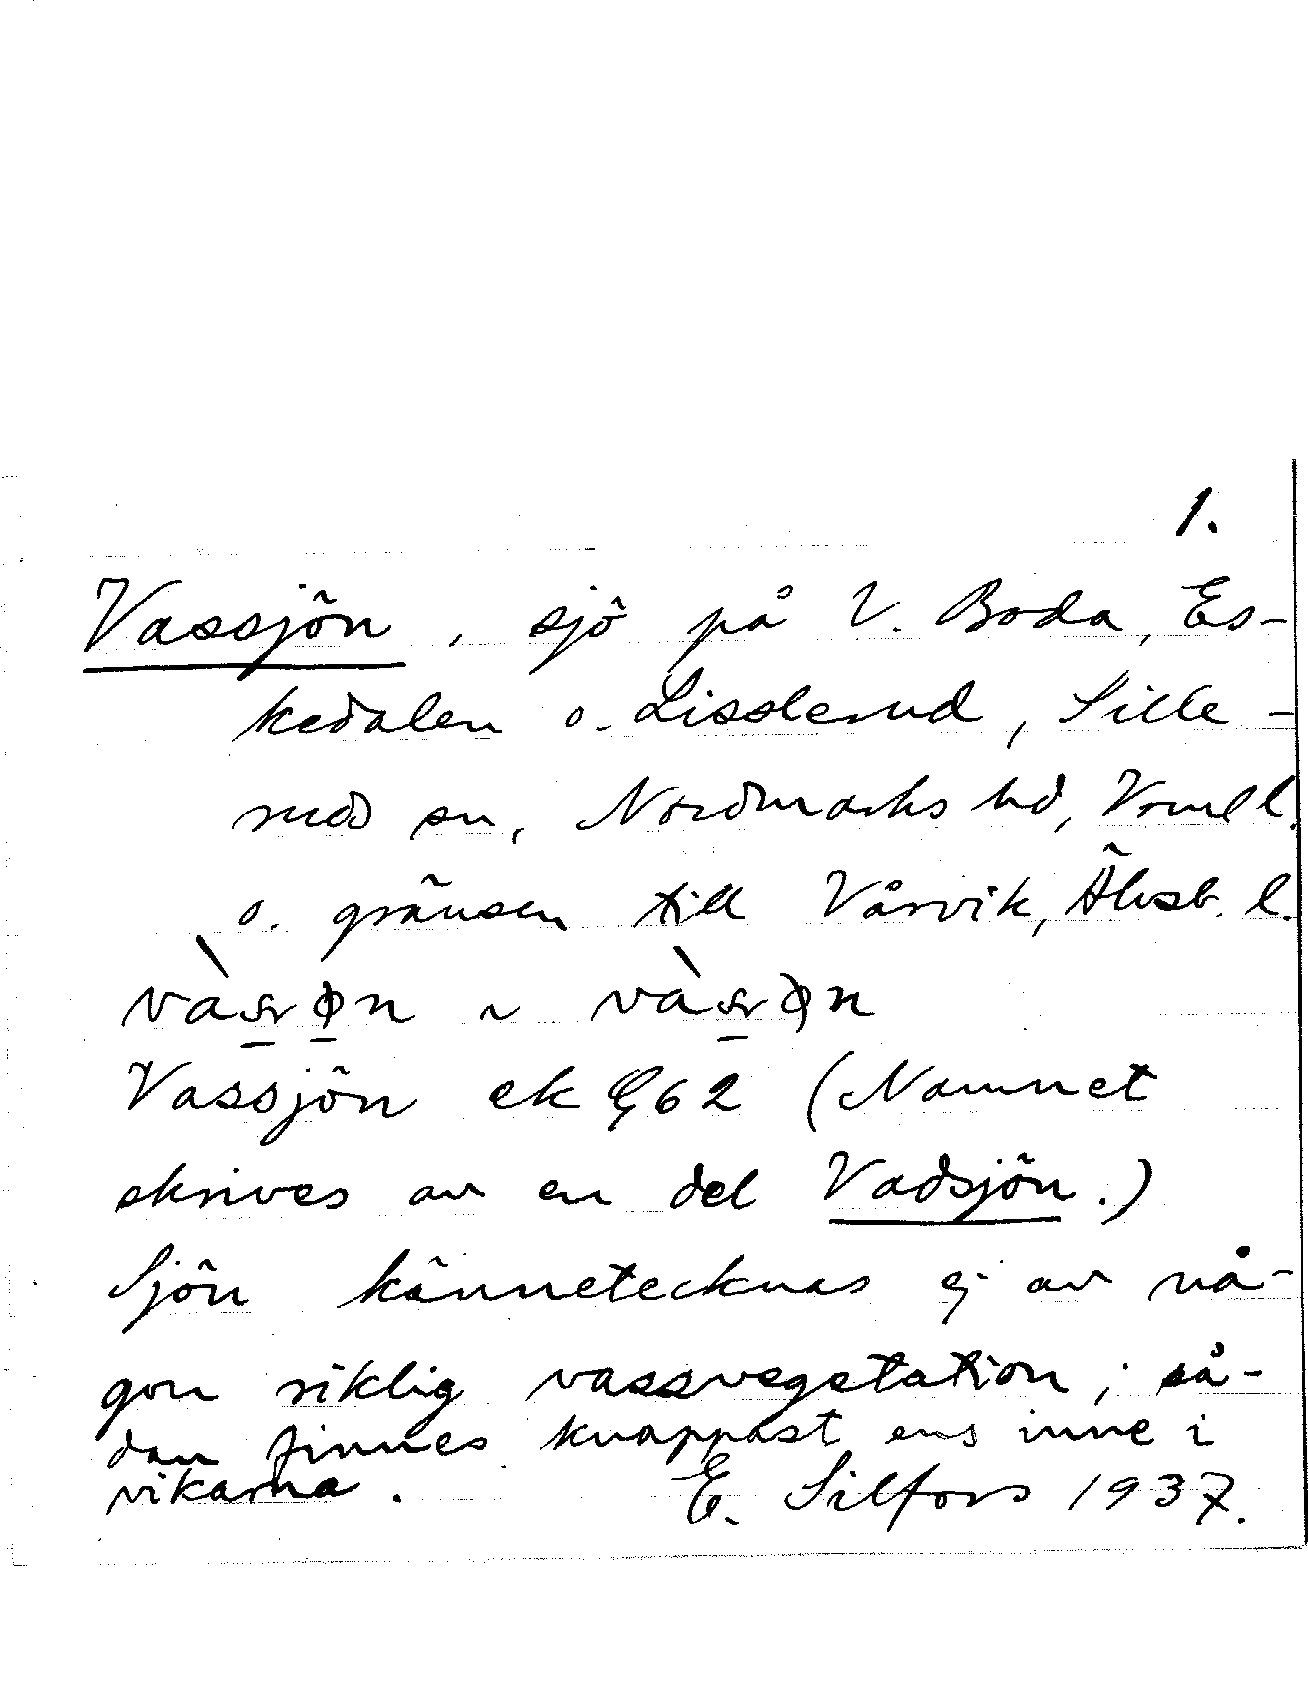 1.
Vassjön, sjö på V. Boda, Es-
kedalen o. Lisslerud, Sille-
rud sn, Nordmarks hd, Vrml l.
o. gränsen till Vårvik, Älvsb. l.
Vassjön ek 962 (Namnet
skrives av en del Vadsjön.)
Sjön kännetecknas ej av nå-
gon riklig vassvegetation; så-
dan finnes knappast ens inne i
vikarna. E. Silfors 1937.